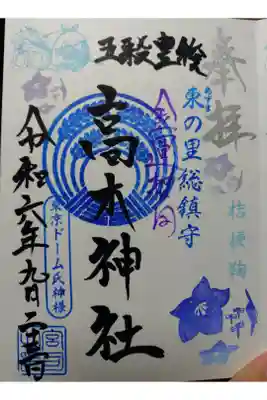 奉拝
桔梗鞠
東の里総鎮守
五穀豊穣
高木神社
東京ドーム氏神様
令和六年九月
宮司